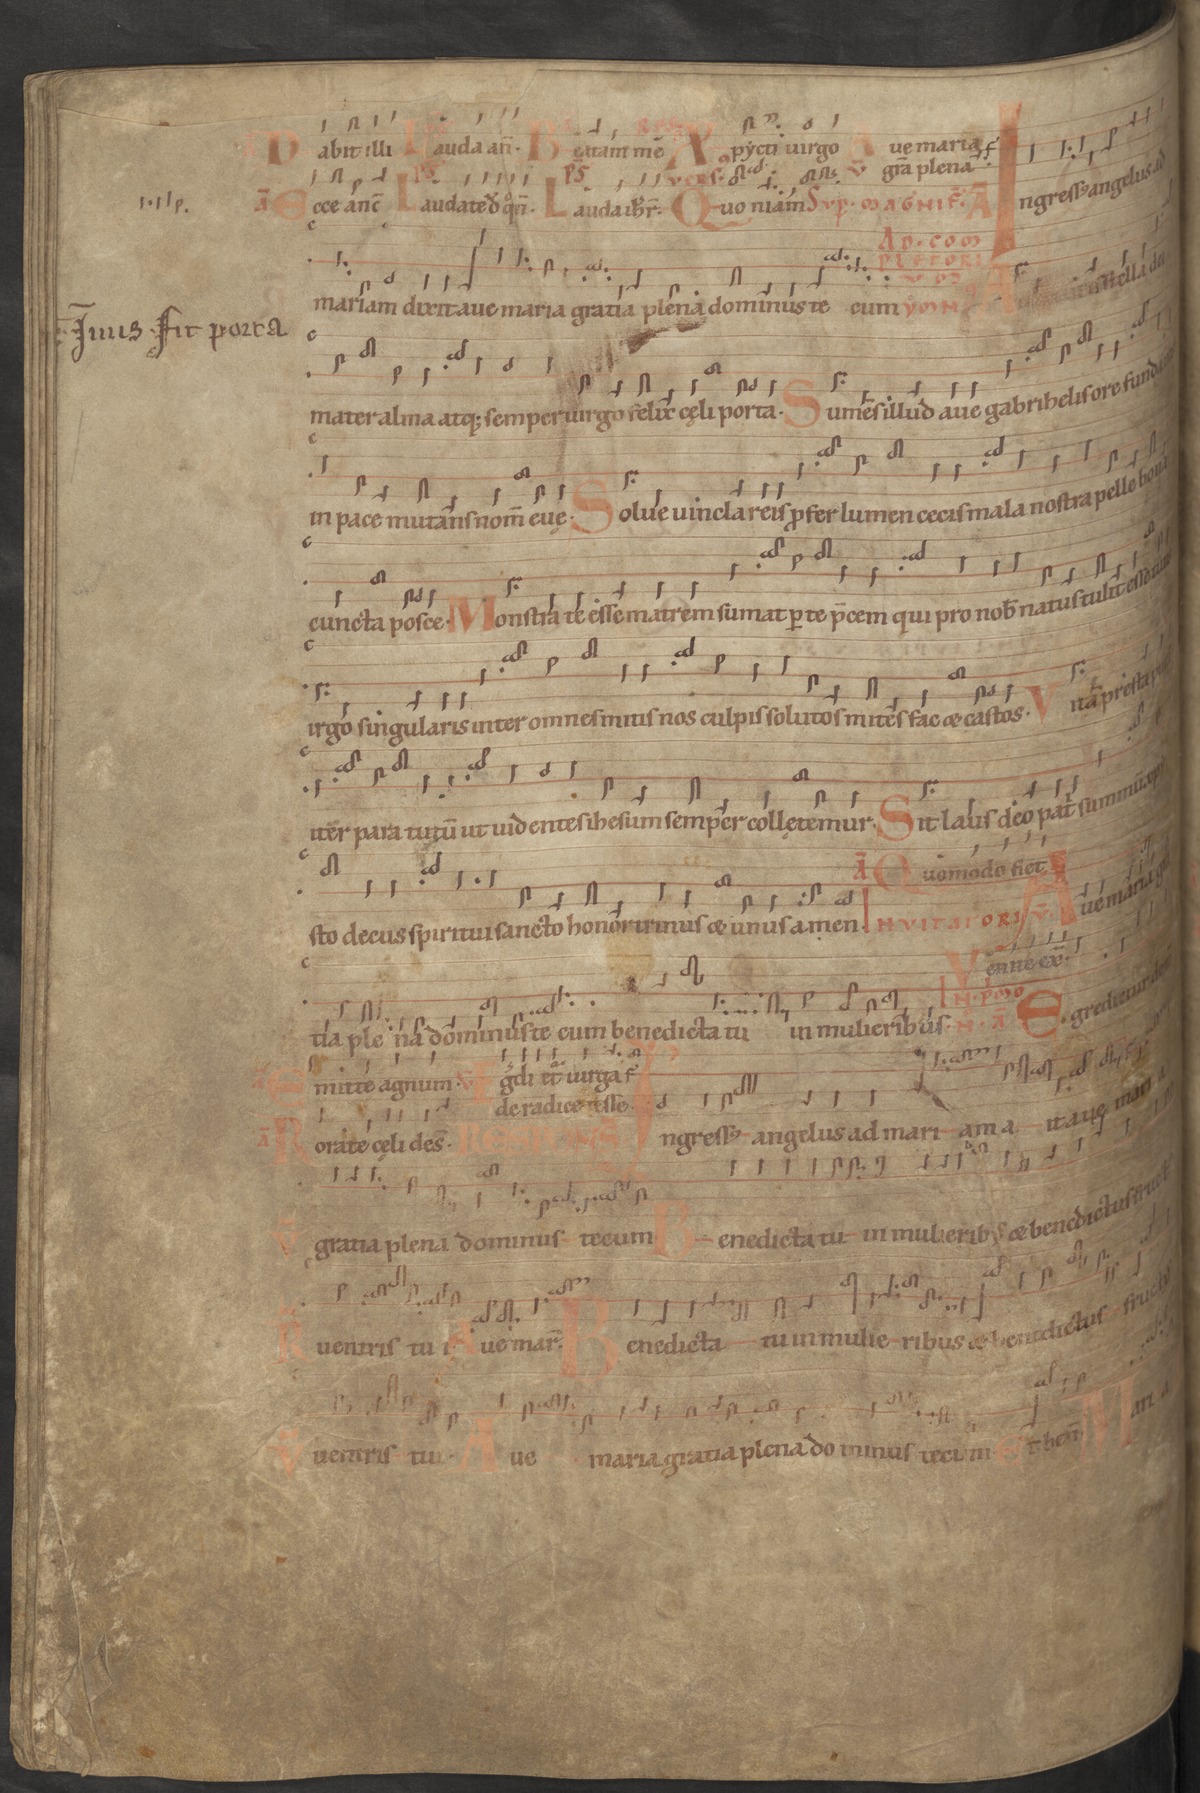 Dabit illi Lauda añ. Beatam mē Xpȳcti uirgo Aue maria f
gr̄a plena
Ā Ecce anc̄ Laudate d q̄n̄. Lauda ihr̄. Quoniam Svp. MAGNIF. Ā Ingress angelus ad
AD. COM
PLETORI
mariam dixit aue maria gratia plena dominus te cum YMN maris stella dei
Jmus Fit porta
mater alma atq; semper uirgo felix cęli porta. Sumes illud aue gabrihelis ore funda
in pace mutans nom̄ euę. Solue uincla reis pfer lumen cecis mala nostra pelle bona
cuncta posce. Monstra te esse matrem sumat p te p̄cem qui pro nob̄ natus tulit esse
irgo singularis inter omnes mitis nos culpis solutos mites fac & castos. Vitā presta
iter para tutū ut uidentes ihesum semper collętemur. Sit laus deo pat̄ summū
sto decus spiritui sancto honor trinus & unus amen. Ā Quomodo fiet
INVITATORI Aue maria gra
Venite ex̄.
tia plena dominus te cum benedicta tu in mulieribus. Egredietur
Emitte agnum. V Egdi et uirga f
de radice iesse.
Ā Rorate cęli des̄. Ingress angelus ad mariam a it auę maria
gratia plena dominus tecum Benedicta tu in mulierib; & benedictus fruct
uentris tui Aue mar̄. Benedicta tu in mulieribus & benedictus fructus
uentris tui. Aue maria gratia plena dominus tecum Maria